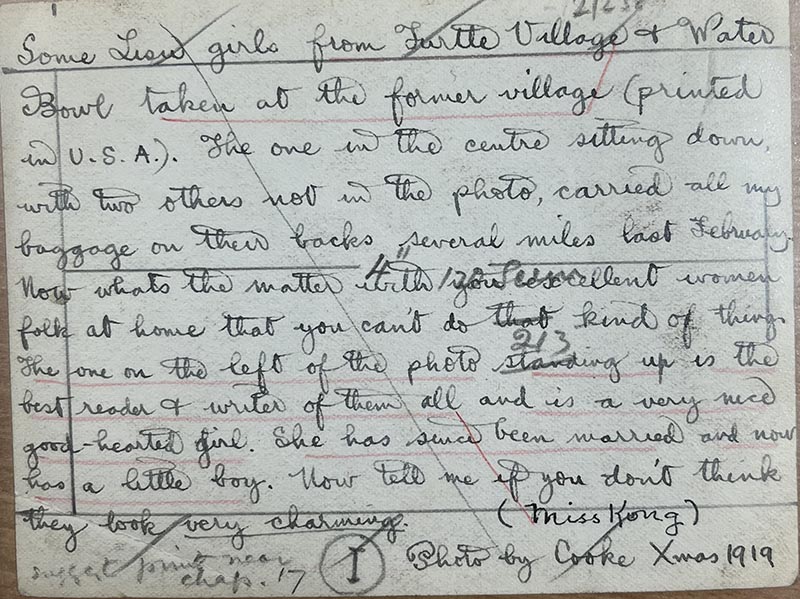 2123
Some Lisu girls from Turtle Village & Water
Bowl taken at the former village (printed
in U.S.A.). The one in the centre sitting down,
with two others not in the photo, carried all my
baggage on their backs several miles last February.
4" 120 Screen
Now whats the matter with you excellent women
folk at home that you can't do that kind of thing.
213
The one on the left of the photo standing up is the
best reader & writer of them all and is a very nice
good-hearted girl. She has since been married and now
has a little boy. Now tell me if you don't think
they look very charming.
(Miss Kong)
suggest print near
chap. 17
I
Photo by Cooke Xmas 1919